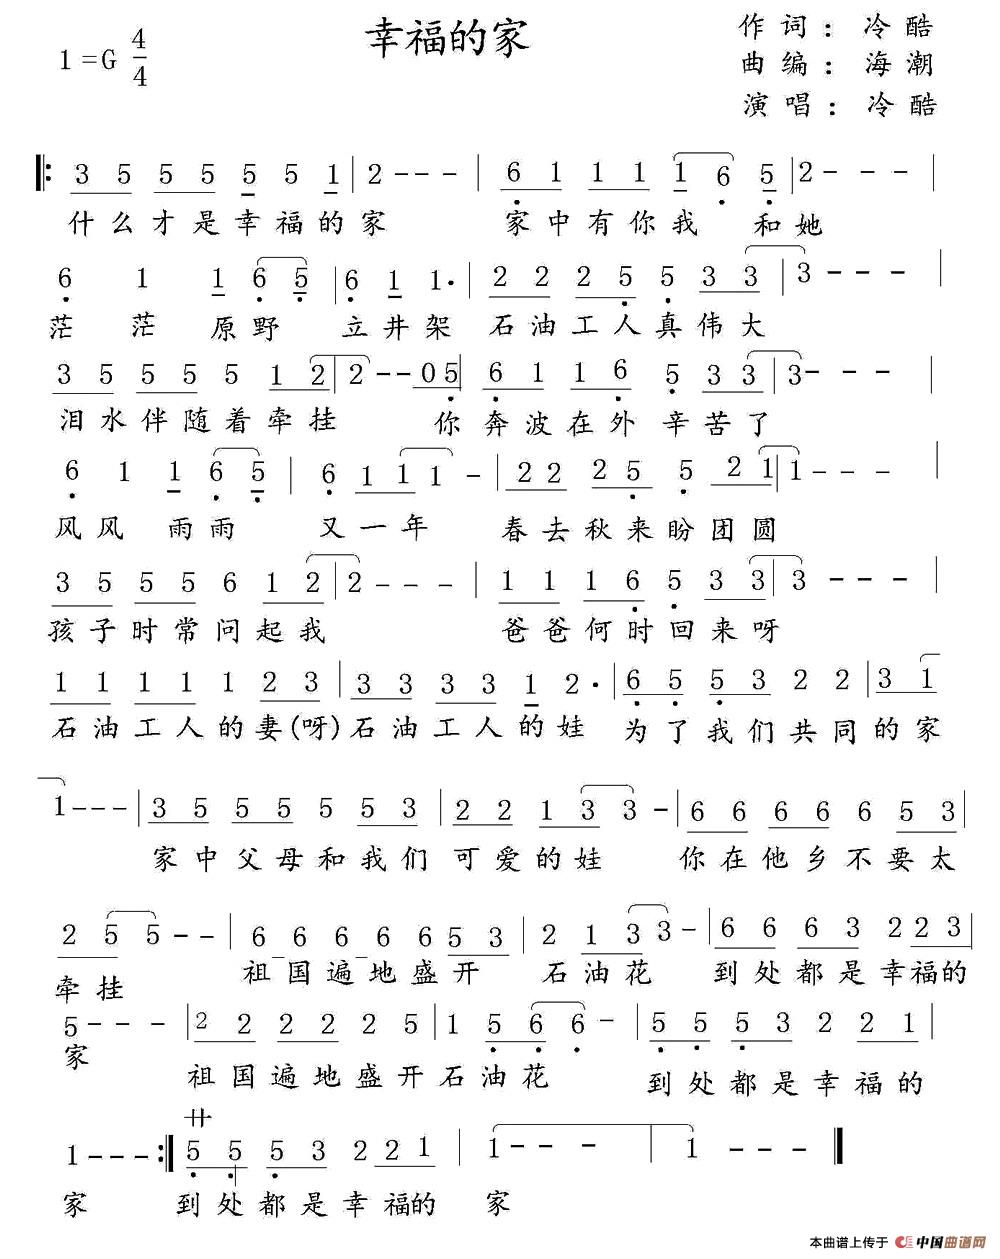 幸福的家
1=G 4/4
作词：冷酷
曲编：海潮
演唱：冷酷
3 5 5 5 5 5 1 | 2 - - - | 6 1 1 1 1 6 5 | 2 - - |
什么才是幸福的家 家中有你我 和她
6 1 1 6 5 | 6 1 1· | 2 2 2 5 5 3 3 | 3 - - - |
茫 茫 原野 立井架 石油工人真伟大
3 5 5 5 5 1 2 | 2 - - 0 5 | 6 1 1 6 5 3 3 | 3 - - - |
泪水伴随着牵挂 你奔波在外 辛苦了
6 1 1 6 5 | 6 1 1 1 - | 2 2 2 5 5 2 1 | 1 - - - |
风风 雨雨 又一年 春去秋来盼团圆
3 5 5 5 6 1 2 | 2 - - - | 1 1 1 6 5 3 3 | 3 - - - |
孩子时常问起我 爸爸何时回来呀
1 1 1 1 1 2 3 | 3 3 3 3 1 2· | 6 5 5 3 2 2 | 3 1
石油工人的妻(呀)石油工人的娃 为了我们共同的家
1 - - - | 3 5 5 5 5 5 3 | 2 2 1 3 3 - | 6 6 6 6 6 5 3 |
家中父母和我们 可爱的娃 你在他乡不要太
2 5 5 - - | 6 6 6 6 6 5 3 | 2 1 3 3 - | 6 6 6 3 2 2 3 |
牵挂 祖国遍地盛开 石油花 到处都是幸福的
5 - - - | 2 2 2 2 2 5 | 1 5 6 6 - | 5 5 5 3 2 2 1 |
家 祖国遍地盛开石油花 到处都是幸福的
1 - - - :| 5 5 5 3 2 2 1 | 1 - - - | 1 - - - |
家 到处都是幸福的 家
本曲谱上传于 中国曲谱网